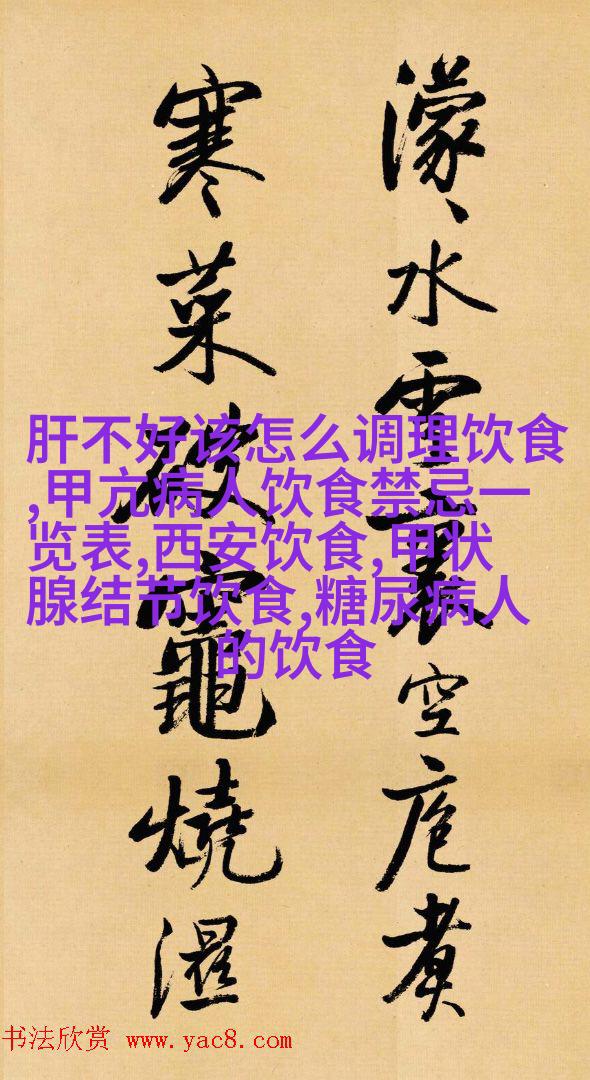 濛〻水雲裏空庖煮
寒菜破竈燒濕
肝不好该怎么调理饮食
,甲亢病人饮食禁忌一
览表,西安饮食,甲状
腺结节饮食,糖尿病人
的饮食
书法欣赏 www.yac8.com